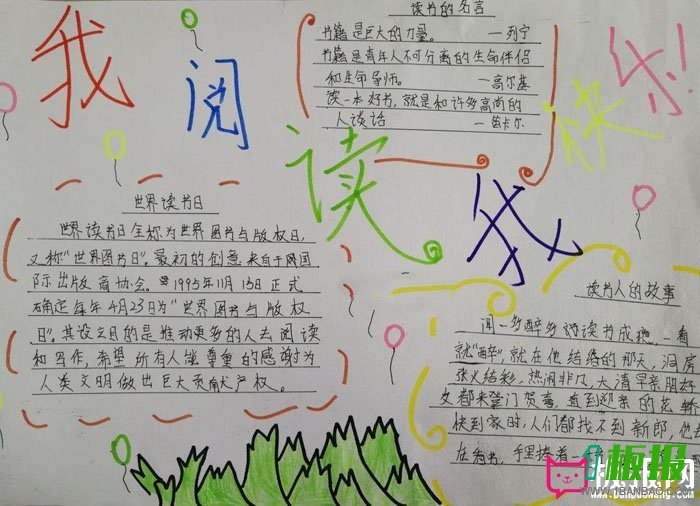 我阅读我快乐!
读书的名言
书籍是巨大的力量。 —列宁
书籍是青年人不可分离的生命伴侣
和生命导师。 —高尔基
读一本好书，就是和许多高尚的
人谈话 —笛卡尔
世界读书日
世界读书日全称为世界图书与版权日，
又称"世界图书日"。最初的创意来自于国
际出版商协会。1995年11月15日正式
确定每年4月23日为"世界图书与版权
日"。其设立目的是推动更多的人去阅读
和写作，希望所有人能尊重的感谢为
人类文明做出巨大贡献产权。
读书人的故事
闻一多醉多 读书成瘾，一看
就"醉"，就在他结婚的那天，洞房
张灯结彩，热闹非凡，大清早亲朋好
友都来登门贺喜，直到迎亲的花轿
快到家时，人们都找不到新郎，
在 书，手里捧着一
板报网
www.1banbao.com